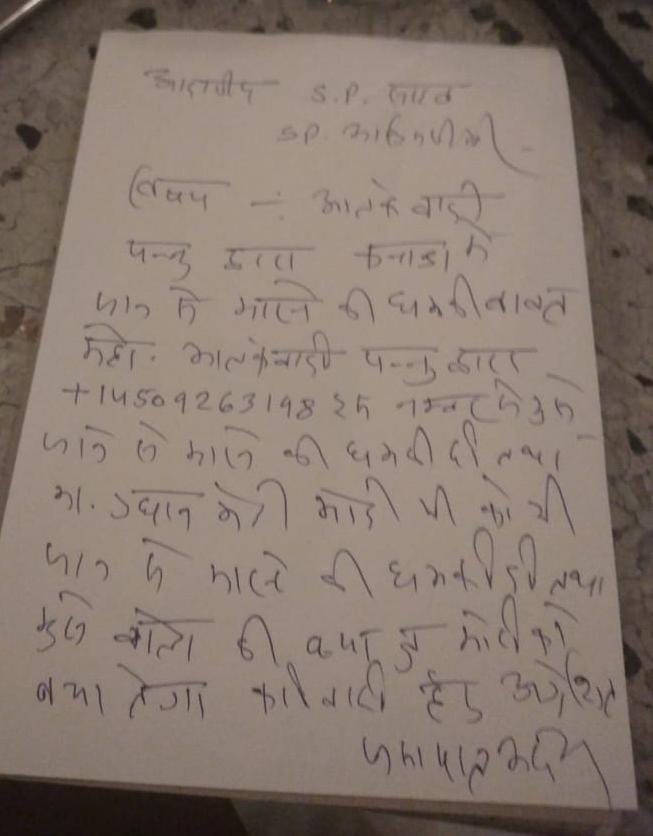 आदरणीय S.P. साहब
S.P.
विषय :- आतंकवादी
पन्नु द्वारा कनाडा से
जान से मारने की धमकी बाबत
महो. आतंकवादी पन्नु द्वारा
+14509263198 इस नम्बर से मुझे
जान से मारने की धमकी दी तथा
मा. प्रधान मंत्री मोदी जी को भी
जान से मारने की धमकी दी तथा
मुझे बोला की क्या तु मोदी को
बचा लेगा कार्यवाही हेतु